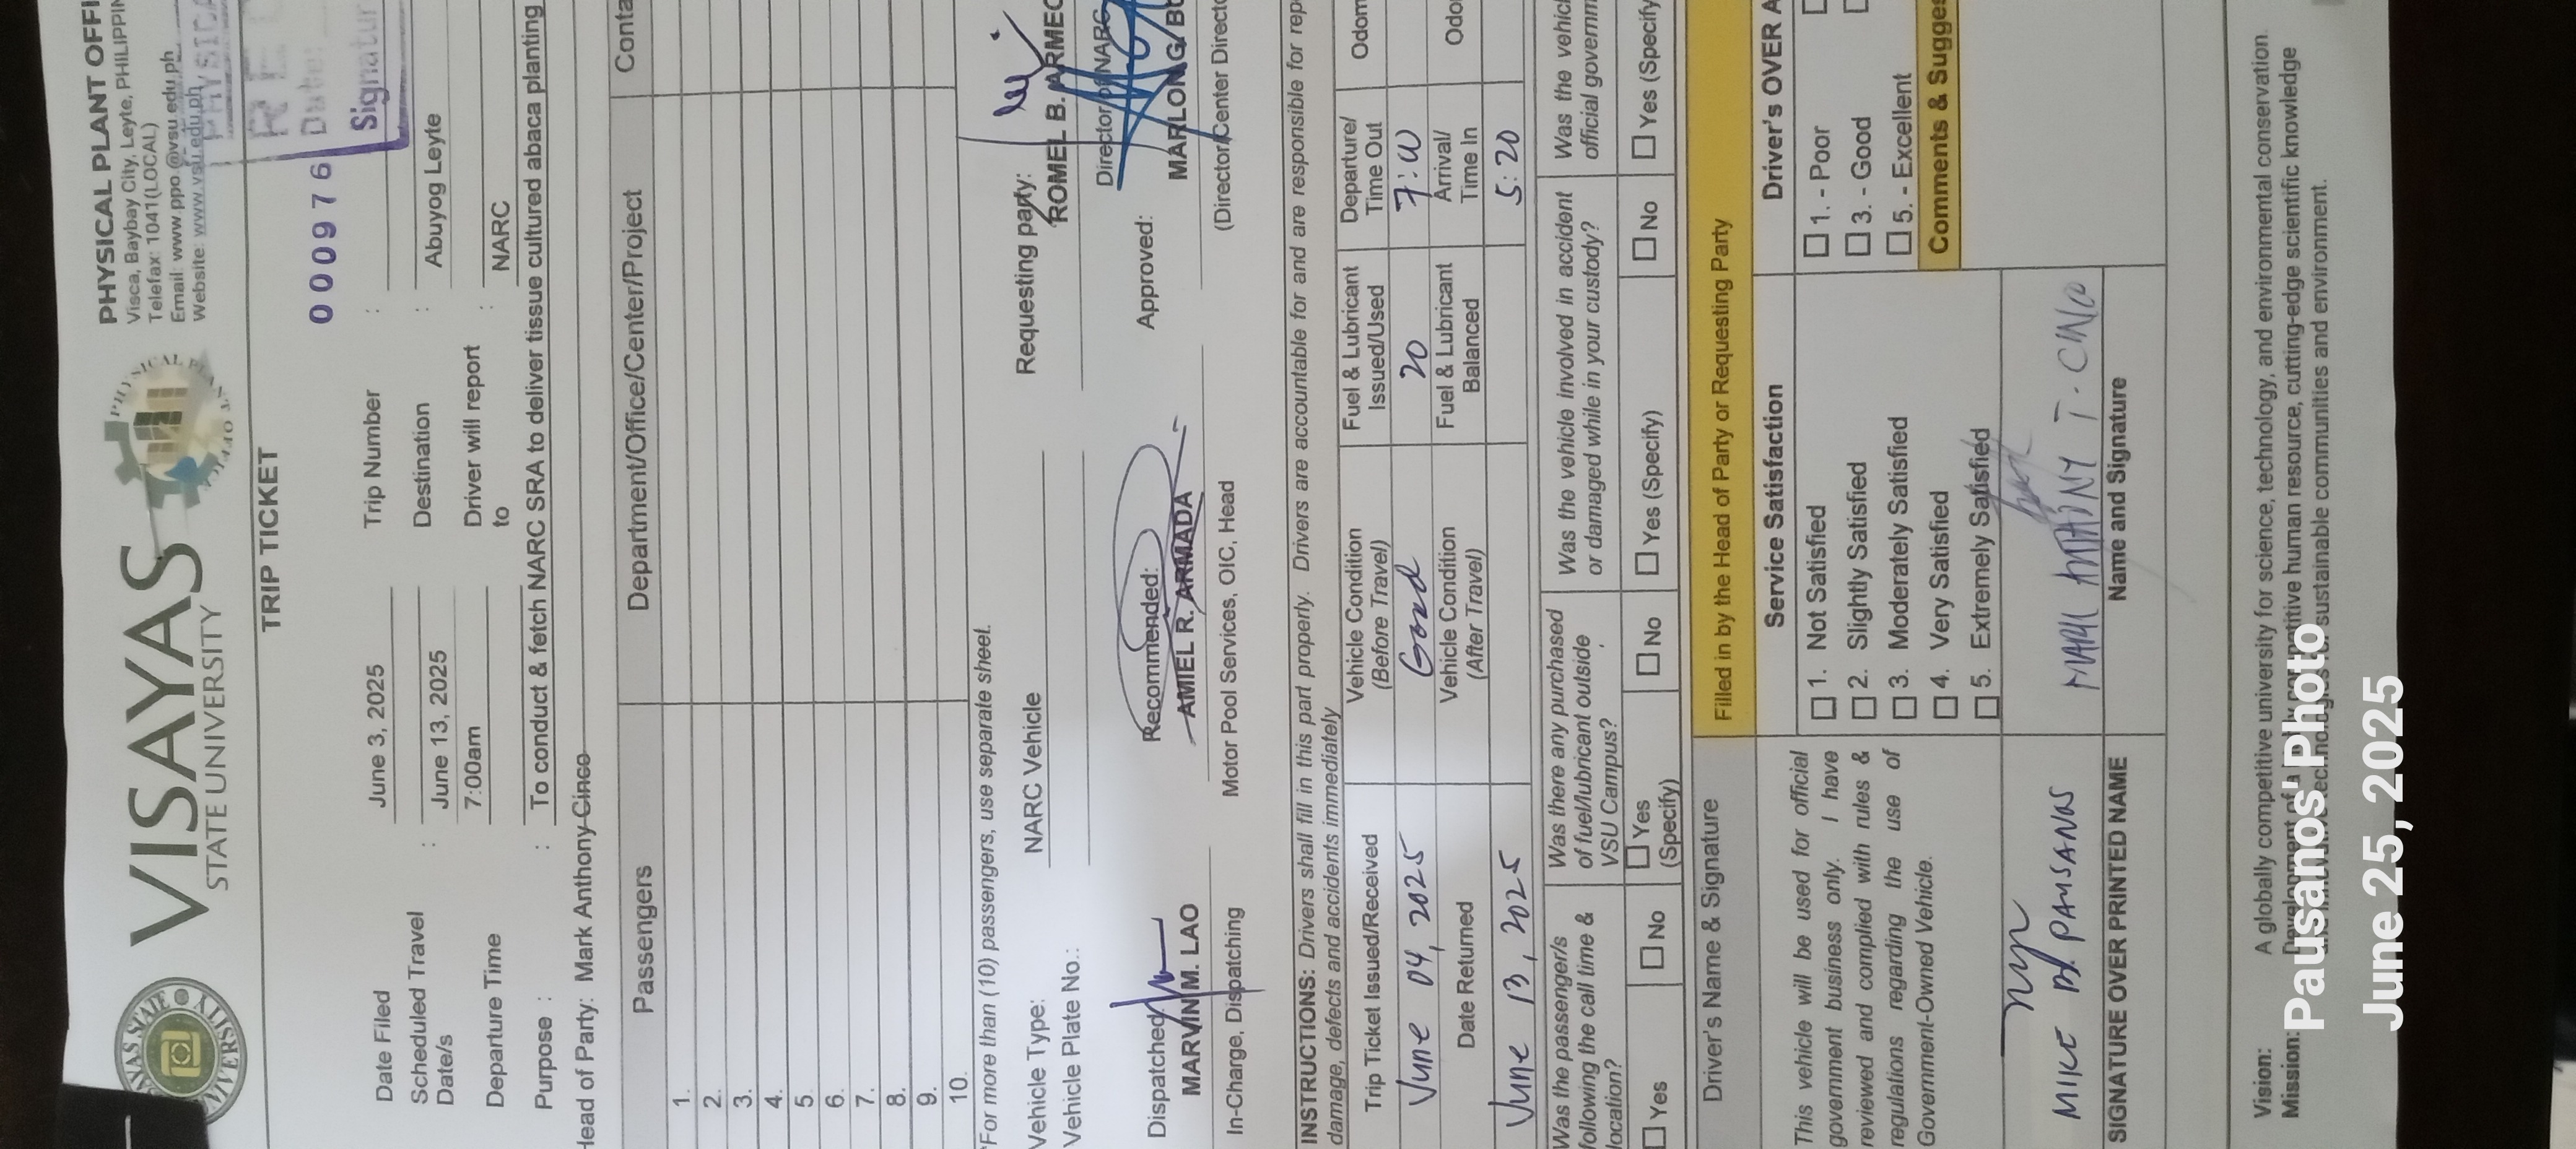 VISAYAS
STATE UNIVERSITY
PHYSICAL PLANT OFFI
Visca, Baybay City, Leyte, PHILIPPIN
Telefax: 1041(LOCAL)
Email: www.ppo.@vsu.edu.ph
Website: www.vsu.edu.ph
TRIP TICKET
000976
Date:
Signatur
Date Filed June 3, 2025 Trip Number :
Scheduled Travel Date/s : June 13, 2025 Destination : Abuyog Leyte
Departure Time 7:00am Driver will report to : NARC
Purpose : : To conduct & fetch NARC SRA to deliver tissue cultured abaca planting
Head of Party: Mark Anthony Cinco
Passengers Department/Office/Center/Project Conta
1.
2.
3.
4.
5.
6.
7.
8.
9.
10.
*For more than (10) passengers, use separate sheet.
Vehicle Type: NARC Vehicle Requesting party:
Vehicle Plate No.: ROMEL B. ARMEC
Director of NARC
Dispatched Recommended: Approved:
MARVIN M. LAO AMIEL R. ARMADA MARLON G. BU
In-Charge, Dispatching Motor Pool Services, OIC, Head (Director/Center Directo
INSTRUCTIONS: Drivers shall fill in this part properly. Drivers are accountable for and are responsible for rep
damage, defects and accidents immediately
Trip Ticket Issued/Received Vehicle Condition (Before Travel) Fuel & Lubricant Issued/Used Departure/ Time Out Odom
June 04, 2025 Good 20 7:00
Date Returned Vehicle Condition (After Travel) Fuel & Lubricant Balanced Arrival/ Time In Odo
June 13, 2025 5:20
Was the passenger/s following the call time & location? Was there any purchased of fuel/lubricant outside VSU Campus? Was the vehicle involved in accident or damaged while in your custody? Was the vehic official governm
Yes No Yes (Specify) No Yes (Specify) No Yes (Specify
Driver's Name & Signature Filled in by the Head of Party or Requesting Party
Service Satisfaction Driver's OVER A
This vehicle will be used for official
government business only. I have
reviewed and complied with rules &
regulations regarding the use of
Government-Owned Vehicle.
1. Not Satisfied
2. Slightly Satisfied
3. Moderately Satisfied
4. Very Satisfied
5. Extremely Satisfied
1. - Poor
3. - Good
5. - Excellent
Comments & Sugges
MARK ANTHONY T. CINCO
SIGNATURE OVER PRINTED NAME Name and Signature
Vision: A globally competitive university for science, technology, and environmental conservation.
Mission:
sustainable communities and environment.
Pausanos' Photo
June 25, 2025